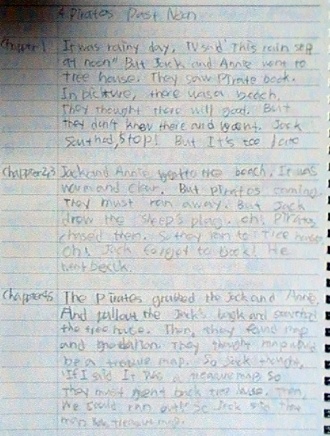 4. Pirates Past Noon
Chapter 1 It was rainy day. TV said "This rain stop
at noon" But Jack and Annie went to
tree house. They saw Pirate book.
In picture, there was a beach.
They thought there will good. But
they don't know there and went. Jack
Stop! But It's too late
Chapter 2,3 Jack and Annie went to the beach. It was
warm and clear. But pirates coming.
They must run away. But Jack
drew the ship's Oh! Pirates
chased them. So they ran to tree house.
Oh! Jack forget to book! He
went
Chapter 4,5 The Pirates grabbed the Jack and Annie.
And the Jack's bag and
the tree house. Then, they found map
and medallion. They thought map
be a treasure map. So Jack thought,
"If I said It was a treasure map So
They must went back tree house. Then,
We could run out!" So Jack said the
map was treasure map.